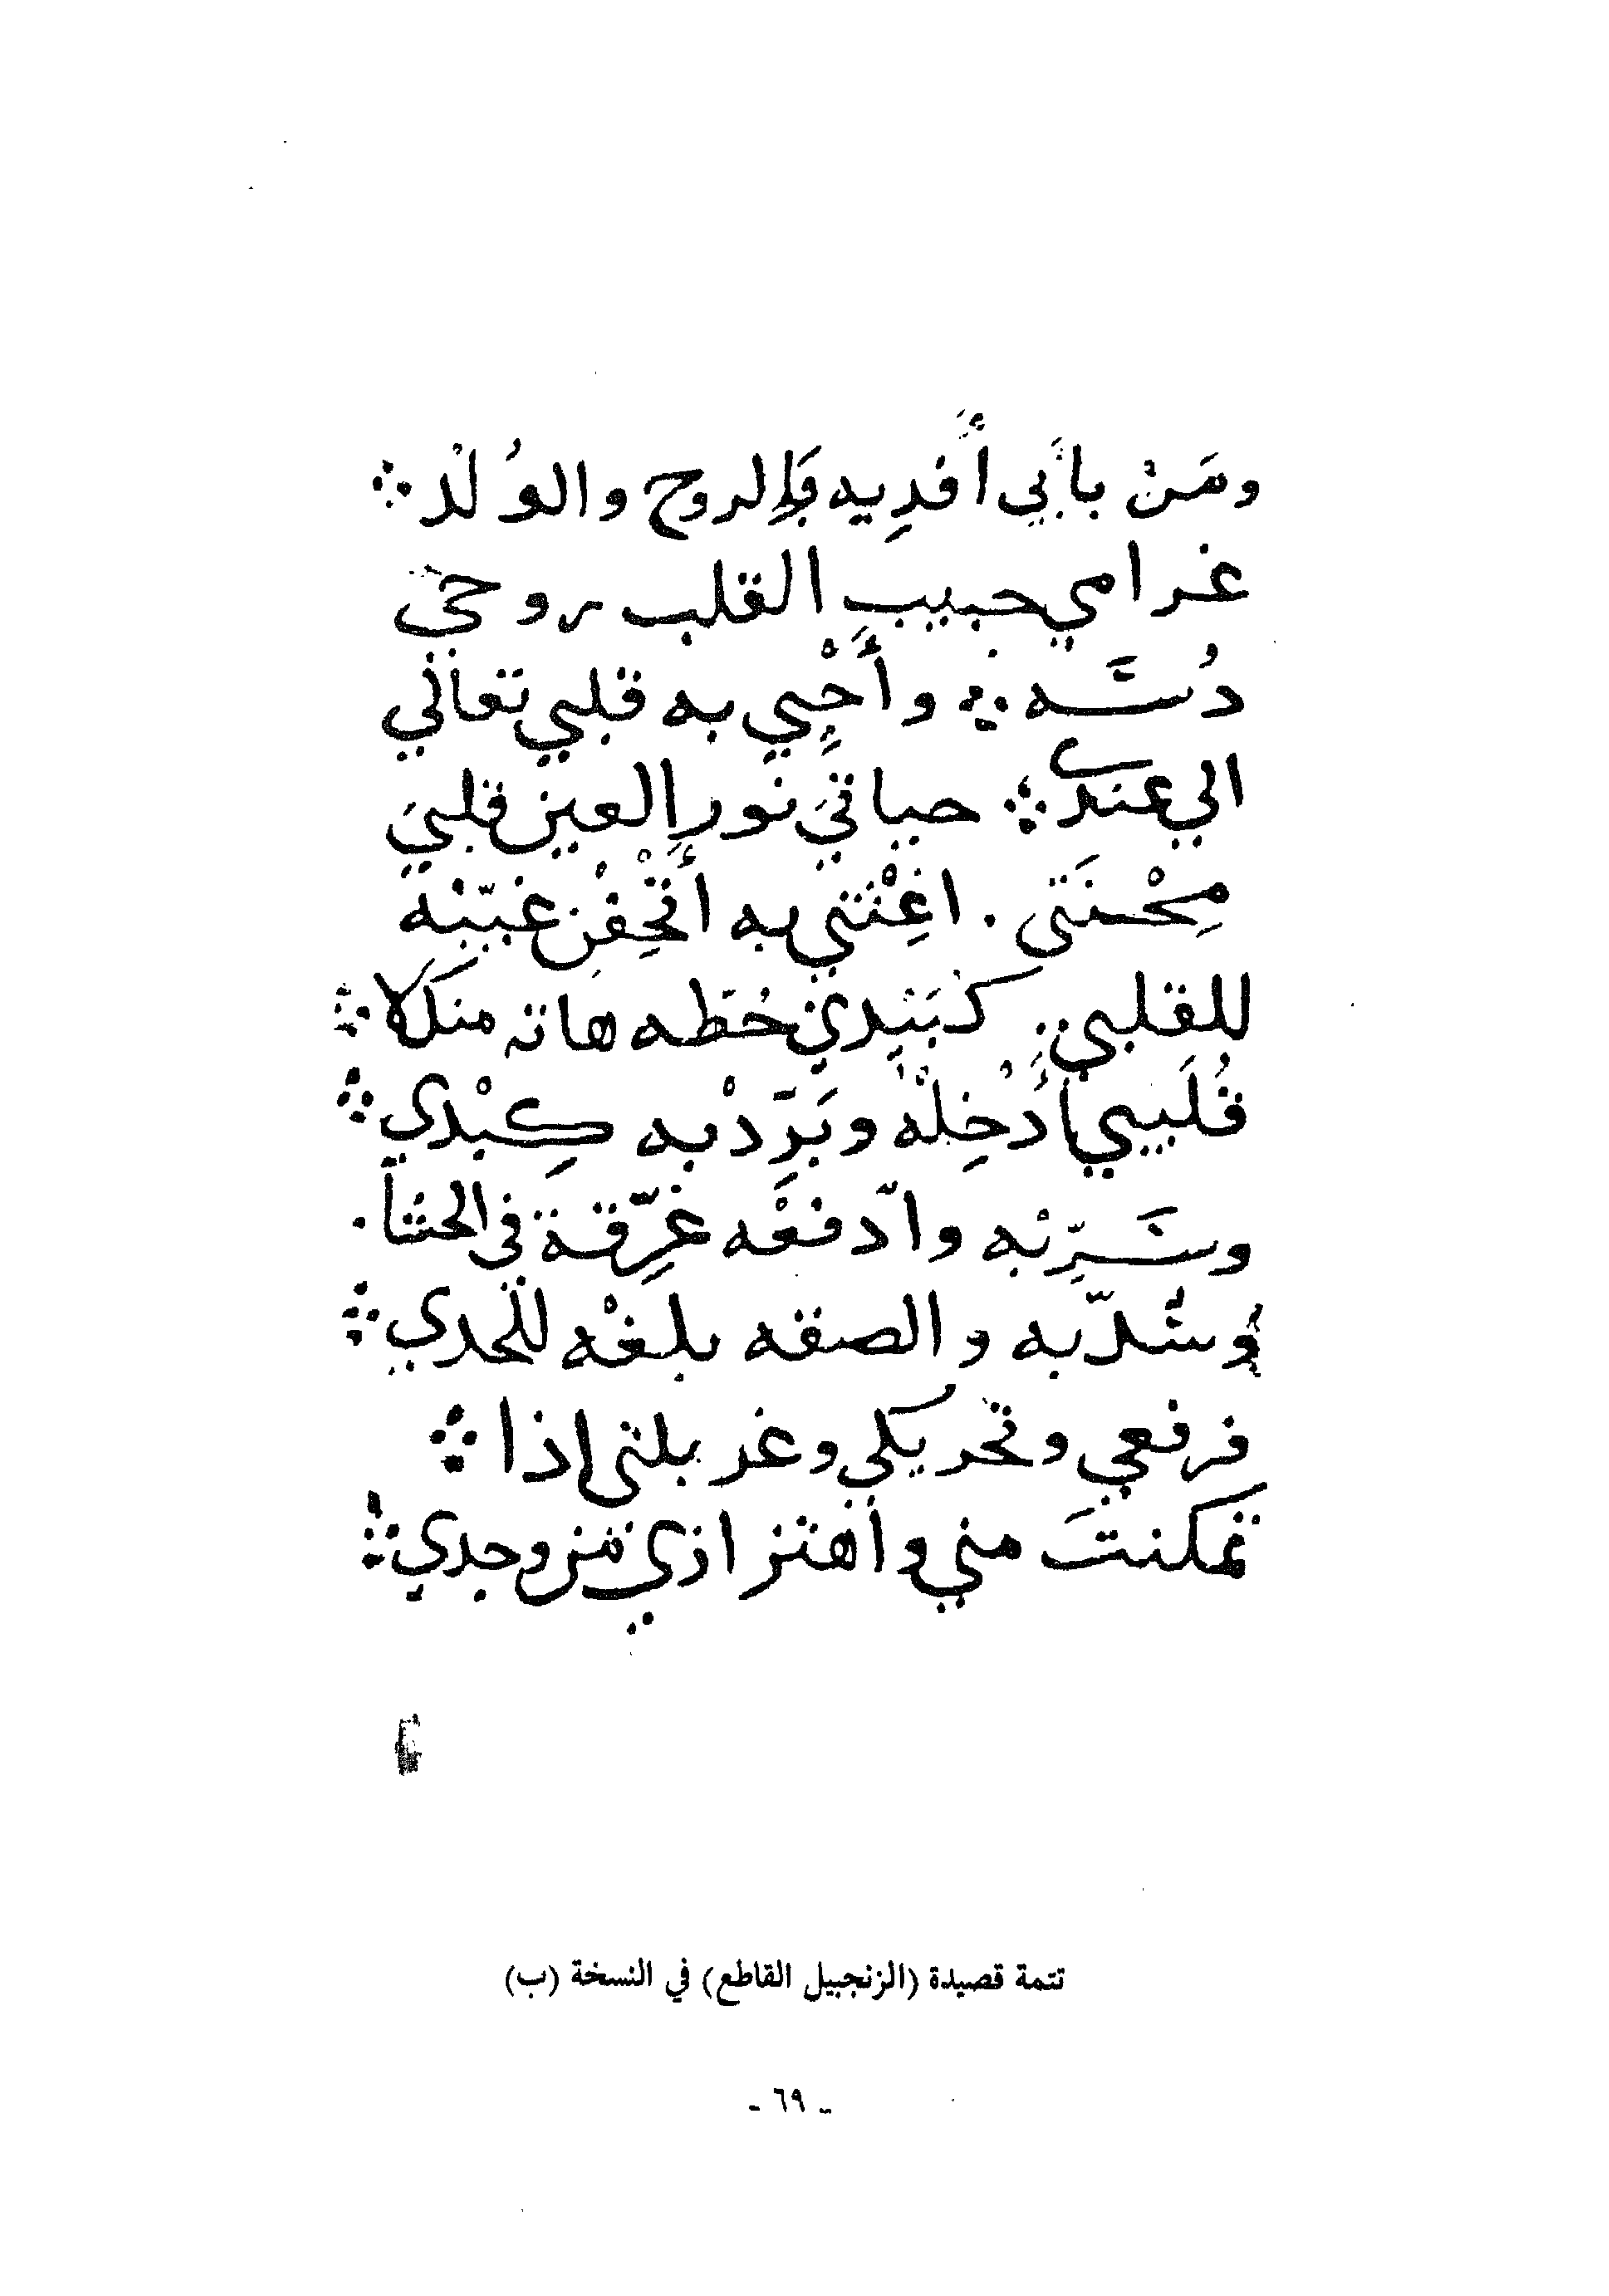 ومَنْ بأبي أَفدِيه بالروح والوُلْد
غرامي حبيب القلب روحي
دُسَّه وأَحْيِي به قلبي تعالي
الي عندي حياتي نور العين قلبي
مِحْنَتي . اغِثْني به أَتْحِفْنِ غيّبْه
للقلبي كَبَيْدي حُطَّه هاته منكلا
قُلَيبي أَدْخِلْه وبَرِّدْ به كِبْدي
وسَرِّبْه وادّفعْه غرّقة في الحشا .
وشدّ به والصقه بلغْه للحدي
فرفعي وتحريكي وغربلتي اذا
تمكنتَ مني واهتزازي من وجدي
تتمة قصيدة (الزنجبيل القاطع) في النسخة (ب)
- ٦٩ -